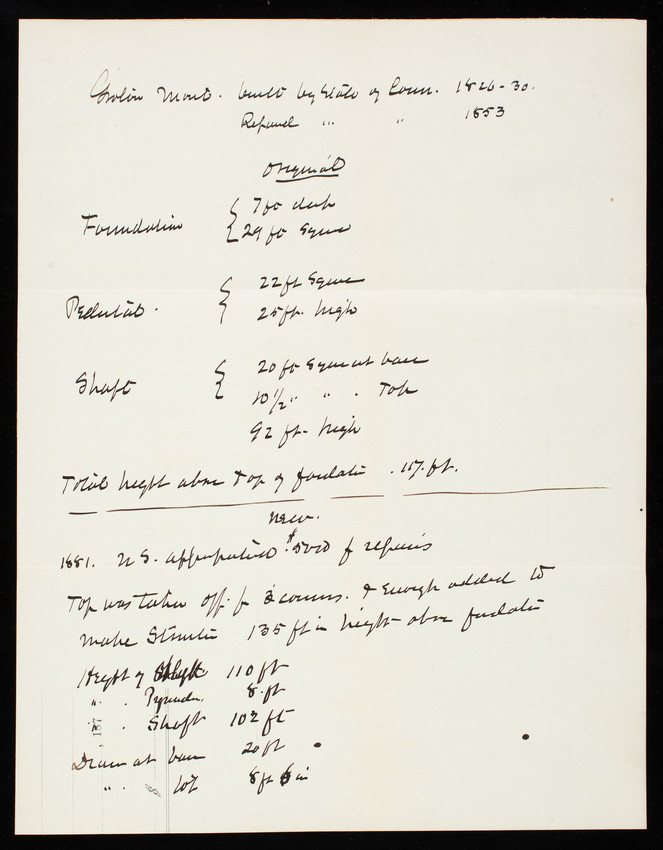 Groton Mont. built by State of Conn. 1826-30.
Repaired " " 1853
Original
Foundation { 7 ft deep
{ 29 ft Square
Pedestal. { 22 ft Square
25 ft. high
Shaft { 20 ft Square at base
10 1/2 " " . Top
92 ft. high
Total height above top of foundatn . 117. ft.
New.
1881. U S. appropriated $5000 for repairs
Top was taken off. for courses. & enough added to
make Structure 135 ft in height above foundatn
Height of Shaft. 110 ft
" . Pyramidn. 8. ft
" . Shaft 102 ft
187
Diam at base 20 ft
" . top 8 ft 6 in